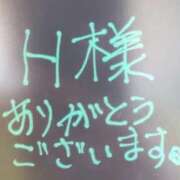 H様
ありがとう
ございます